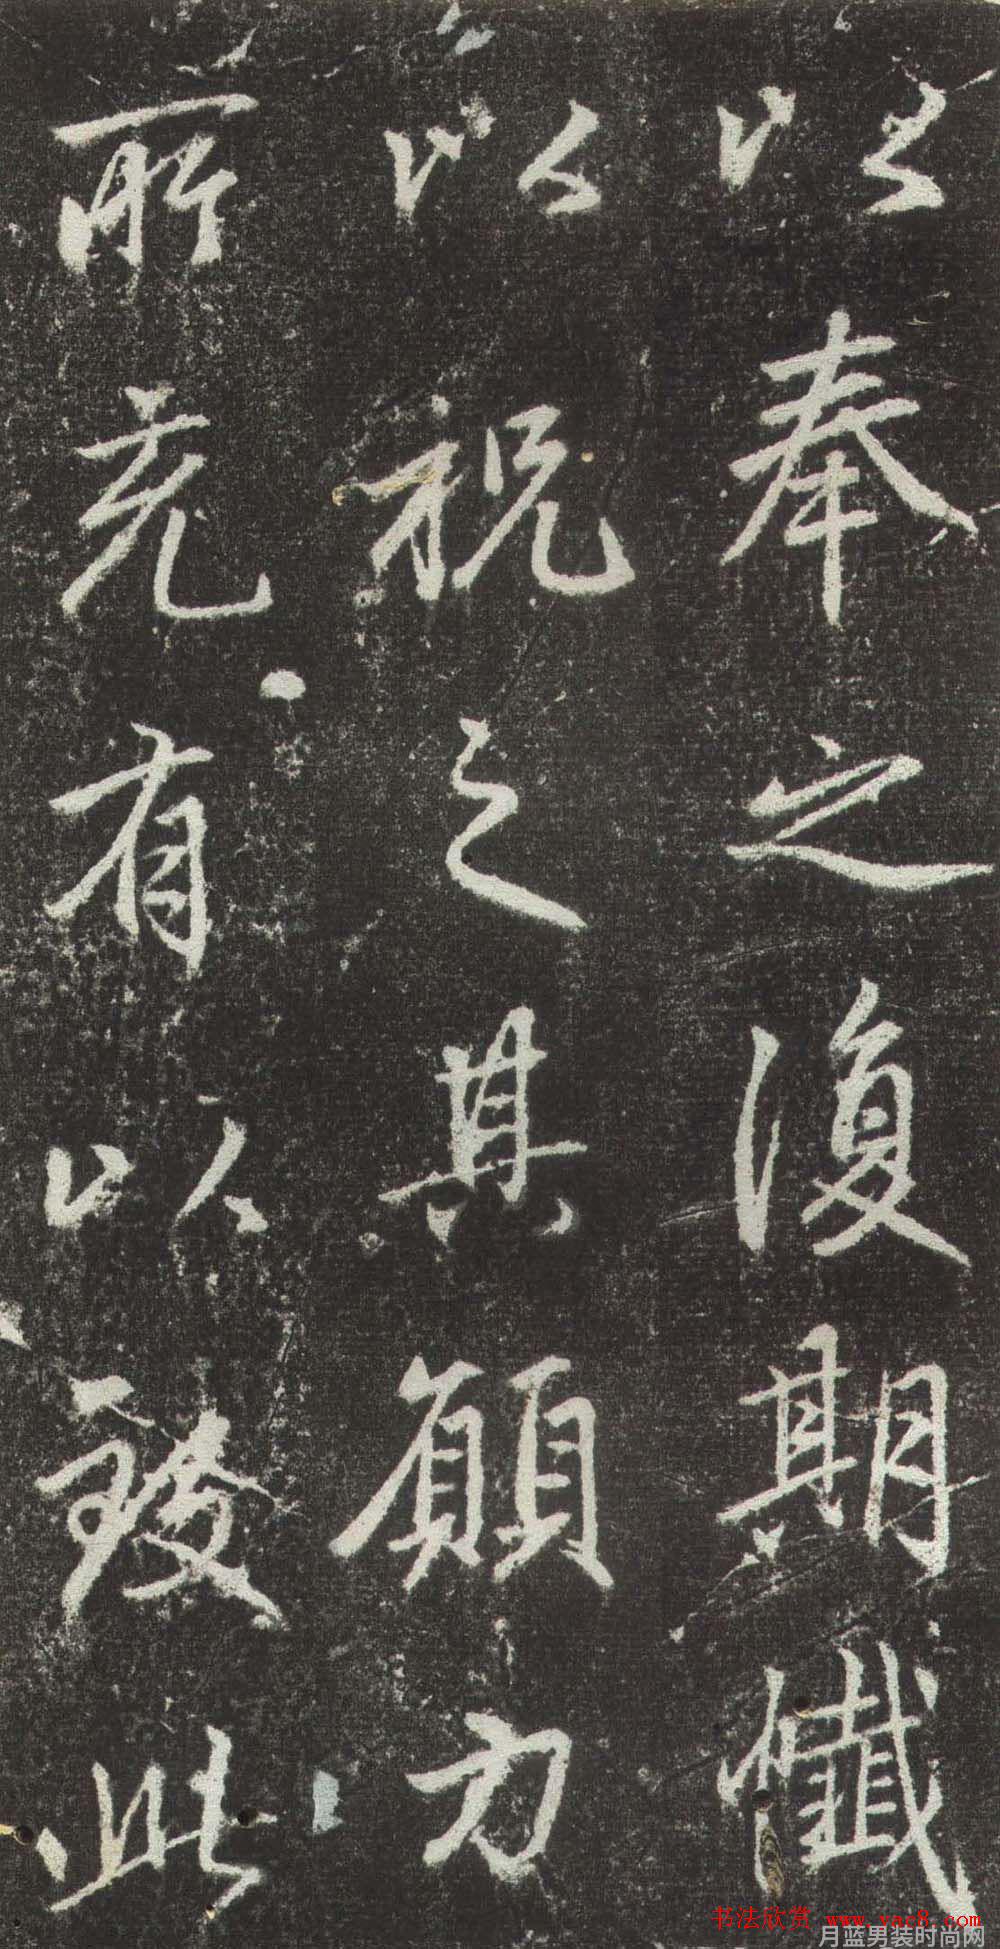 以奉之復期懺
以祝之其願力
所充有以致此
书法欣赏 www.yac8.com
月蓝男装时尚网